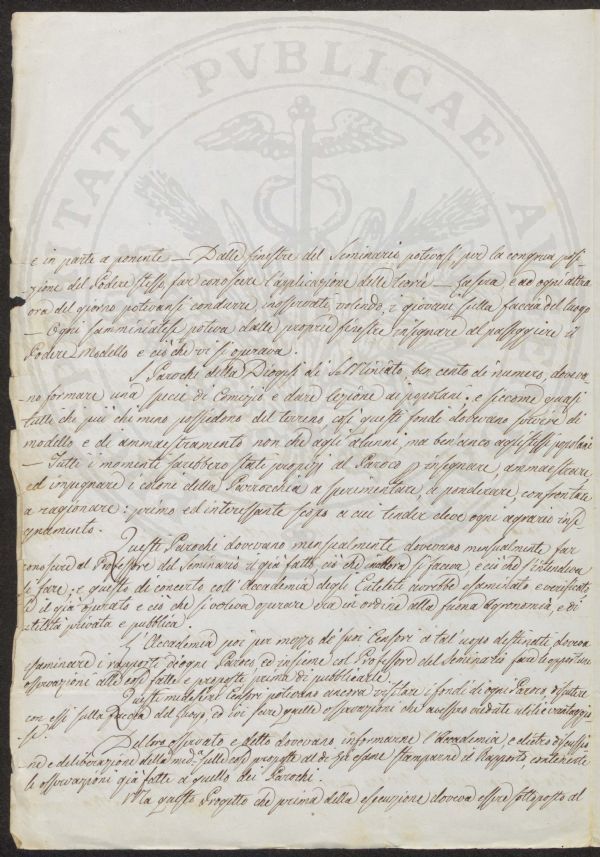 PVBLICAE
e in parte a ponente — Dalle finestre del Seminario potevasi, per la congrua posi
zione del Podere stesso, far conoscere l'applicazione delle teorie — La sera e ad ogni altra
ora del giorno potevansi condurre, inosservati, volendo, i giovani sulla faccia del luogo
— Ogni samminiatese poteva dalle proprie finestre insegnare al passeggiere il
Podere Modello e ciò che vi si operava.
I Parochi della Diogesi di S. Miniato ben cento di numero, doveva-
no formare una specie di Comizio e dare lezione ai popolani; e siccome quasi
tutti chi più chi meno possiedono del terreno, così questi fondi dovevano servire di
modello e di ammaestramento non che agli alunni, ma ben anco agli stessi popolani
— Tutti i momenti sarebbero stati propizj al Paroco p insegnare, ammaestrare
ed impegnare i coloni della Parrocchia a sperimentare, a ponderare, confrontare
a ragionare: primo ed interessante scopo a cui tender deve ogni agrario inse
gnamento.
Questi Parochi dovevano mensualmente dovevano mensualmente far
conoscere al Professore del Seminario il già fatto, ciò che allora si faceva, e ciò che s'intendeva
di fare; e questo di concerto coll'Accademia degli Euteleti avrebbe esaminato e verificato
se il già operato e ciò che si voleva operare era in ordine alla buona Agronomia, e di
utilità privata e pubblica.
L'Accademia poi per mezzo de' suoi Censori a tal uopo destinati, doveva
esaminare i rapporti di ogni Paroco, ed insieme col Professore del Seminario fare le opportune
osservazioni alle cose fatte e proposte prima di pubblicarle.
Questi medesimi Censori potevano ancora visitare i fondi di ogni Paroco, discutere
con essi sulla faccia del luogo, ed ivi fare quelle osservazioni che avessero credute utili e vantaggio
se.
Del loro osservato e detto dovevano informarne l'Accademia, e dietro discussio
ne e deliberazione della med.a sulle cose proposte ad di Lei esame stamparne il Rapporto contenente
le osservazioni già fatte a quello dei Parochi.
Ma questo Progetto che prima della esecuzione doveva essere sottoposto al